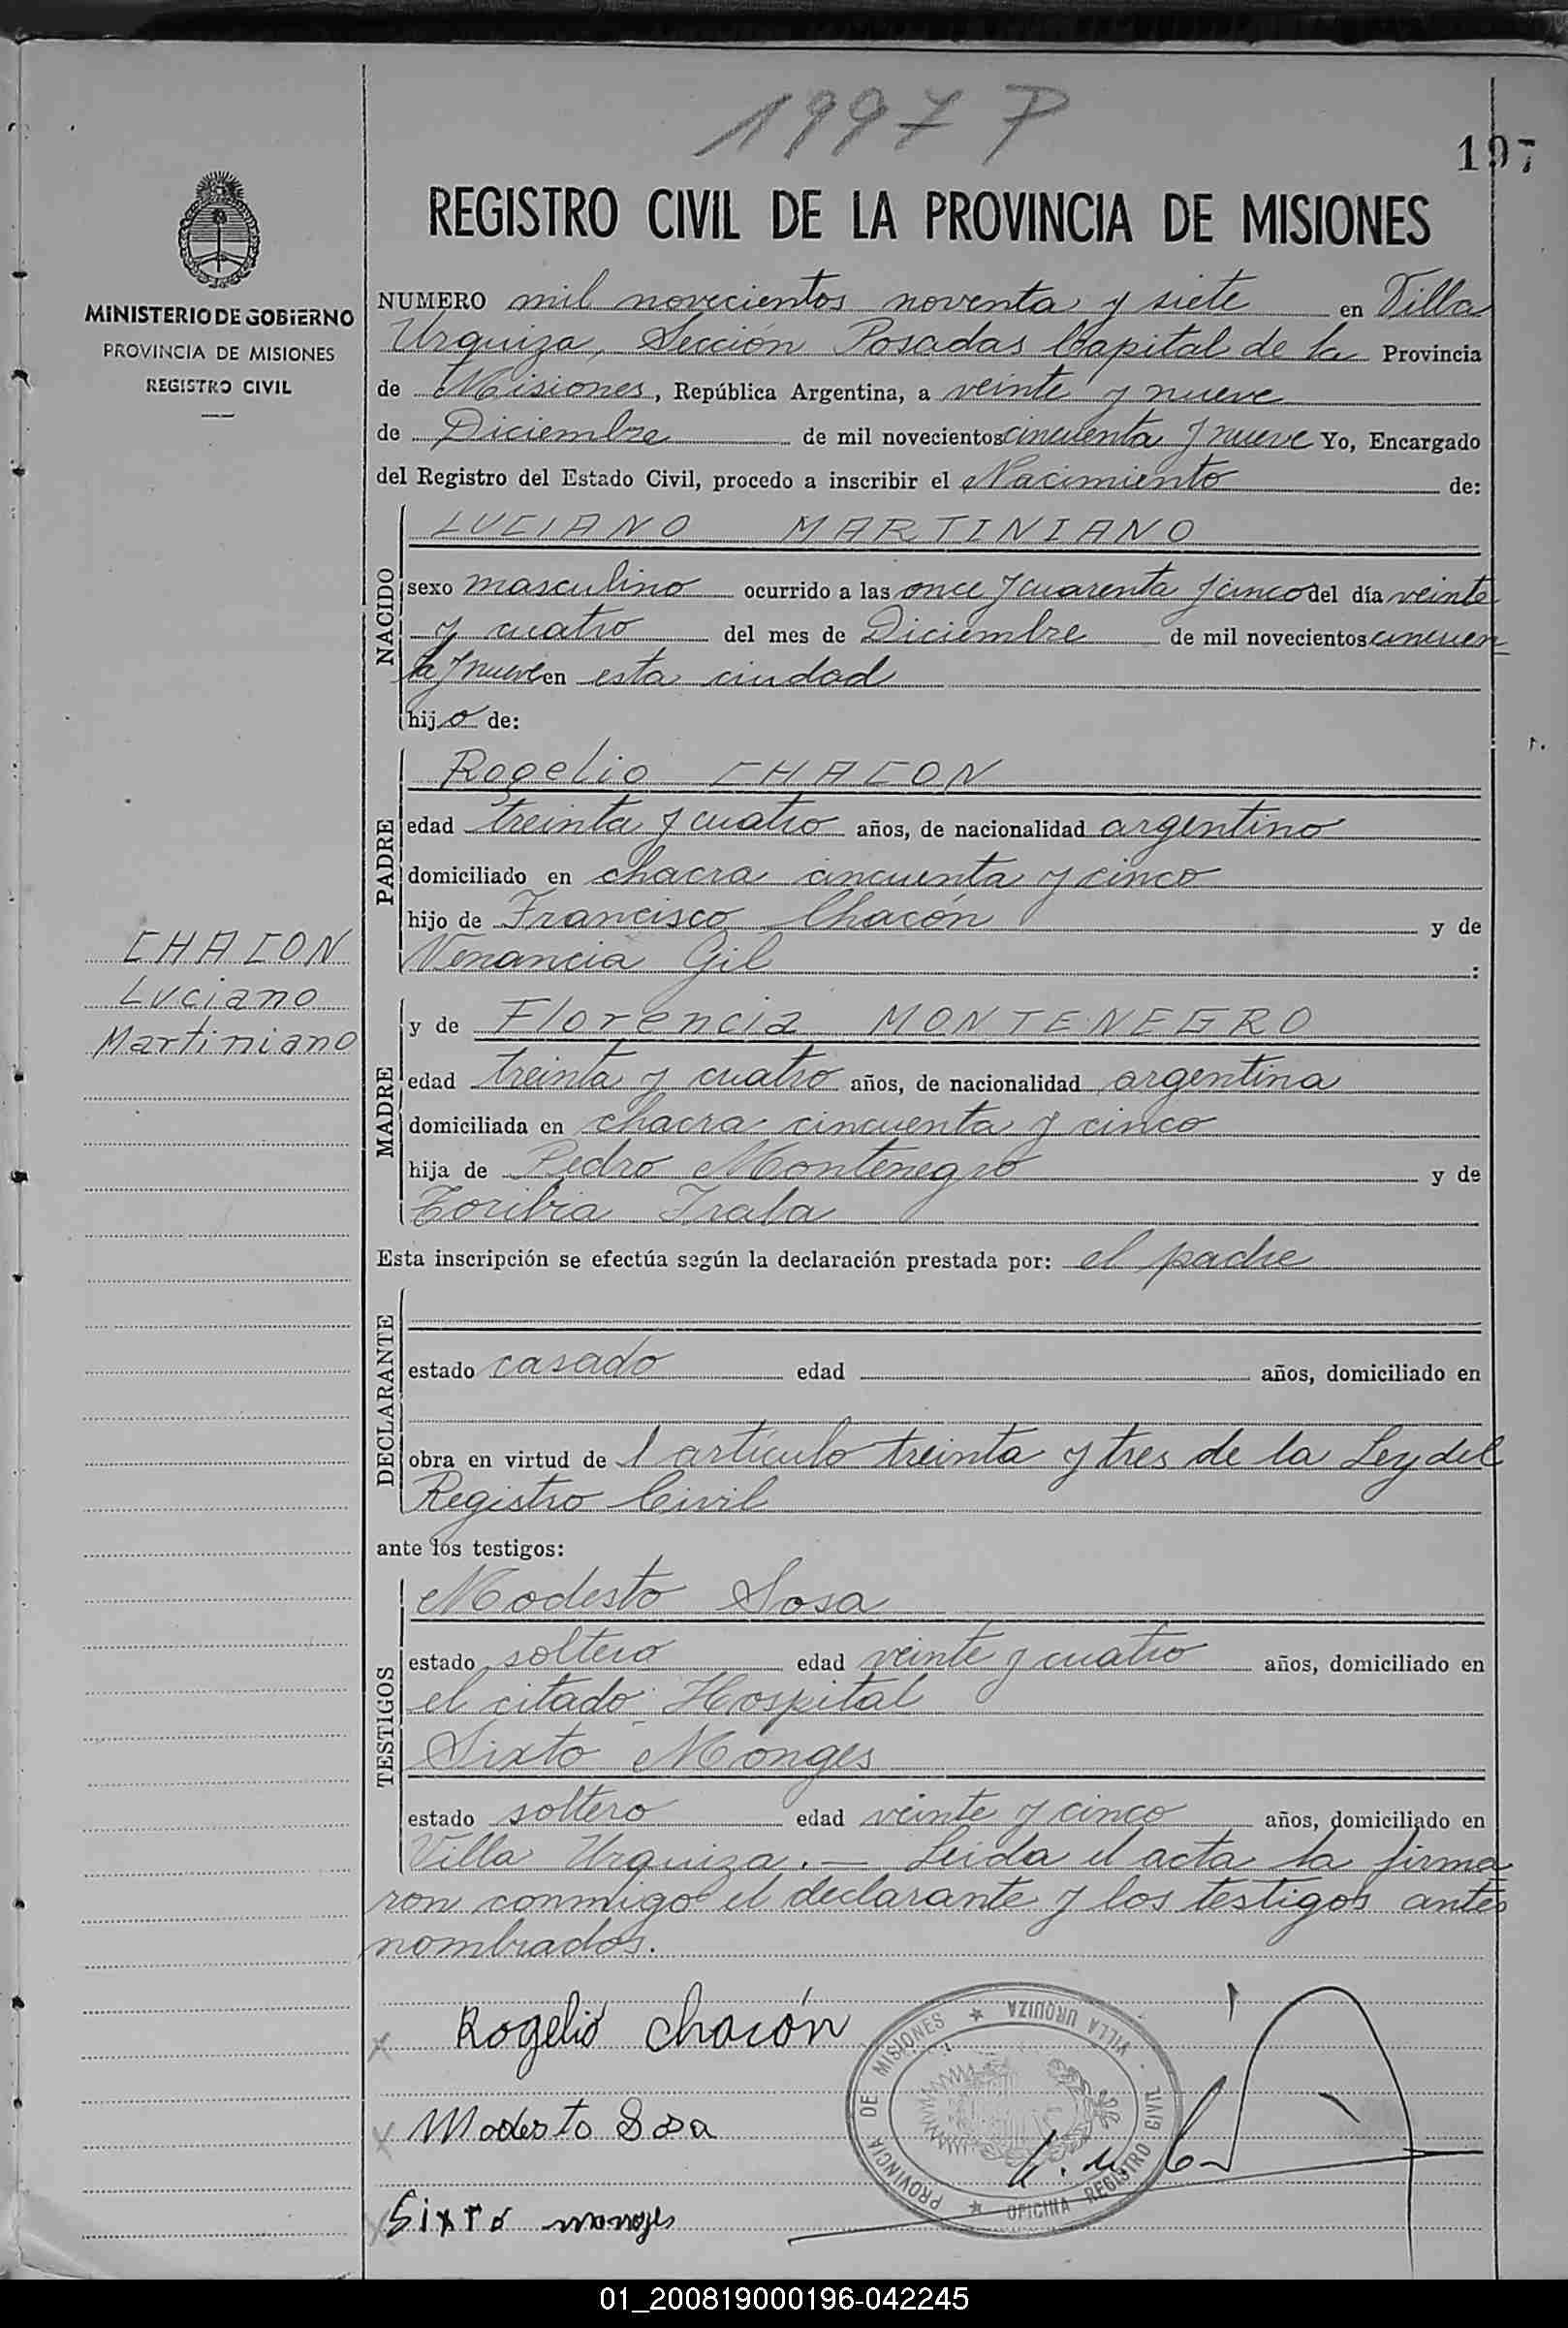 1997 P
197
MINISTERIO DE GOBIERNO
PROVINCIA DE MISIONES
REGISTRO CIVIL
REGISTRO CIVIL DE LA PROVINCIA DE MISIONES
NUMERO mil novecientos noventa y siete en Villa
Urquiza, Sección Posadas Capital de la Provincia
de Misiones, República Argentina, a veinte y nueve
de Diciembre de mil novecientos cincuenta y nueve Yo, Encargado
del Registro del Estado Civil, procedo a inscribir el Nacimiento de:
NACIDO
LUCIANO MARTINIANO
sexo masculino ocurrido a las once y cuarenta y cinco del día veinte
y cuatro del mes de Diciembre de mil novecientos cincuen
ta y nueve en esta ciudad
hijo de:
PADRE
Rogelio CHACON
edad treinta y cuatro años, de nacionalidad argentino
domiciliado en chacra cincuenta y cinco
hijo de Francisco Chacón y de
Venancia Gil :
CHACON
Luciano
Martiniano
MADRE
y de Florencia MONTENEGRO
edad treinta y cuatro años, de nacionalidad argentina
domiciliada en chacra cincuenta y cinco
hija de Pedro Montenegro y de
Toribia Irala
Esta inscripción se efectúa según la declaración prestada por: el padre
DECLARANTE
estado casado edad años, domiciliado en
obra en virtud de l artículo treinta y tres de la Ley del
Registro Civil
ante los testigos:
TESTIGOS
Modesto Sosa
estado soltero edad veinte y cuatro años, domiciliado en
el citado Hospital
Sixto Monges
estado soltero edad veinte y cinco años, domiciliado en
Villa Urquiza.— Leida el acta la firma
ron conmigo el declarante y los testigos antes
nombrados.
Rogelio Chacón
Modesto Sosa
Sixto monges
OFICINA REGISTRO CIVIL - VILLA URQUIZA
PROVINCIA DE MISIONES
01_200819000196-042245